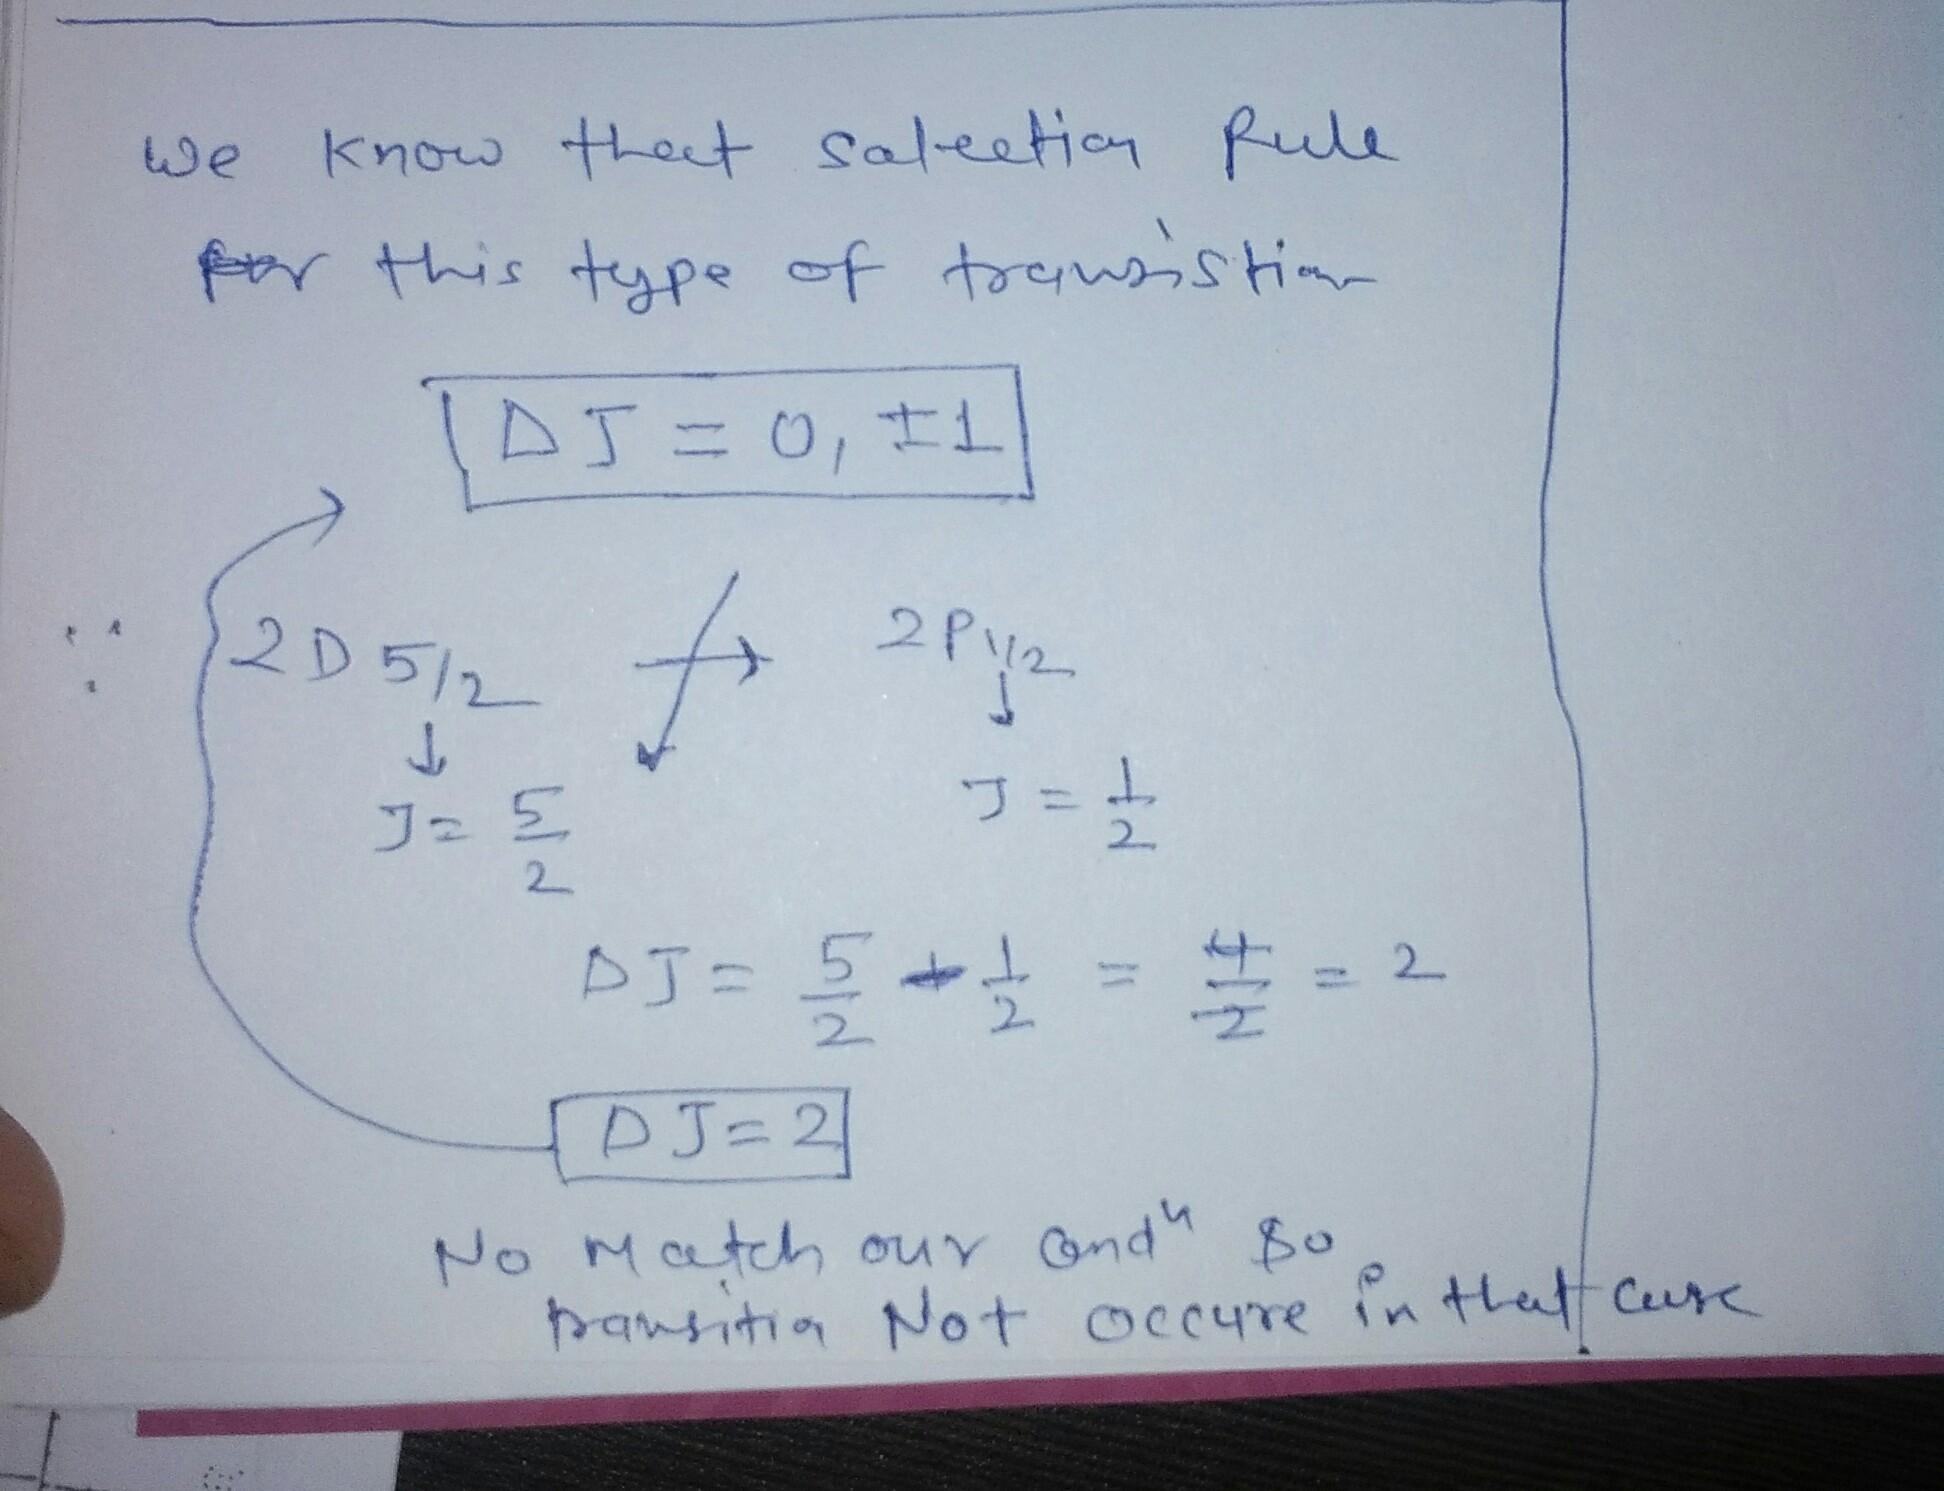 We know that salection Rule
for this type of transistion
ΔJ = 0, ±1
∵ 2D 5/2 → 2P1/2
↓ ↓
J = 5/2 J = 1/2
ΔJ = 5/2 - 1/2 = 4/2 = 2
ΔJ = 2
No Match our Condⁿ So
transition Not occure in that case